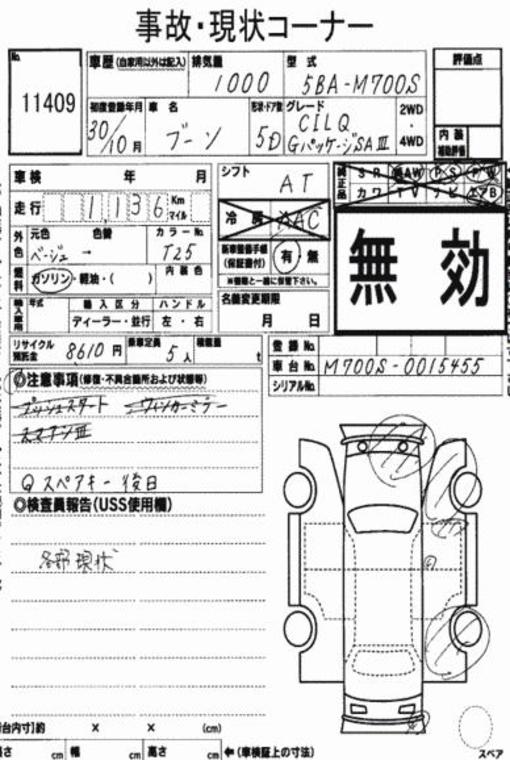 事故・現状コーナー
No. 11409
車歴 (自家用以外は記入) 排気量 1000 型式 5BA-M700S 評価点
初度登録年月 30/10月 車名 ブーン 形状・ドア数 5D グレード CILQ GパッケージSAⅢ 2WD・4WD
内装補助評価
車検 年 月 シフト AT
純正品 SR AW PS PW
カワ TV ナビ エアB
走行 1,136 Km マイル 冷房 AAC
無効
外色 元色 ベージュ 色替 ー カラーNo. T25
新車整備手帳(保証書付) 有・無
※書類と一緒に保管下さい。
燃料 ガソリン・軽油・( ) 内装色
名義変更期限 月 日
輸入車用 年式 輸入区分 ハンドル
ディーラー・並行 左・右
リサイクル預託金 8610円 乗車定員 5人 積載量 t
登録No.
車台No. M700S-0015455
シリアルNo.
◎注意事項(修復・不具合箇所および状態等)
プッシュスタート ウィンカーミラー
スマアシⅢ
Q スペアキー後日
◎検査員報告(USS使用欄)
各部現状
台内寸]約 × × (cm)
長さ cm 幅 cm 高さ cm ←(車検証上の寸法)
スペア